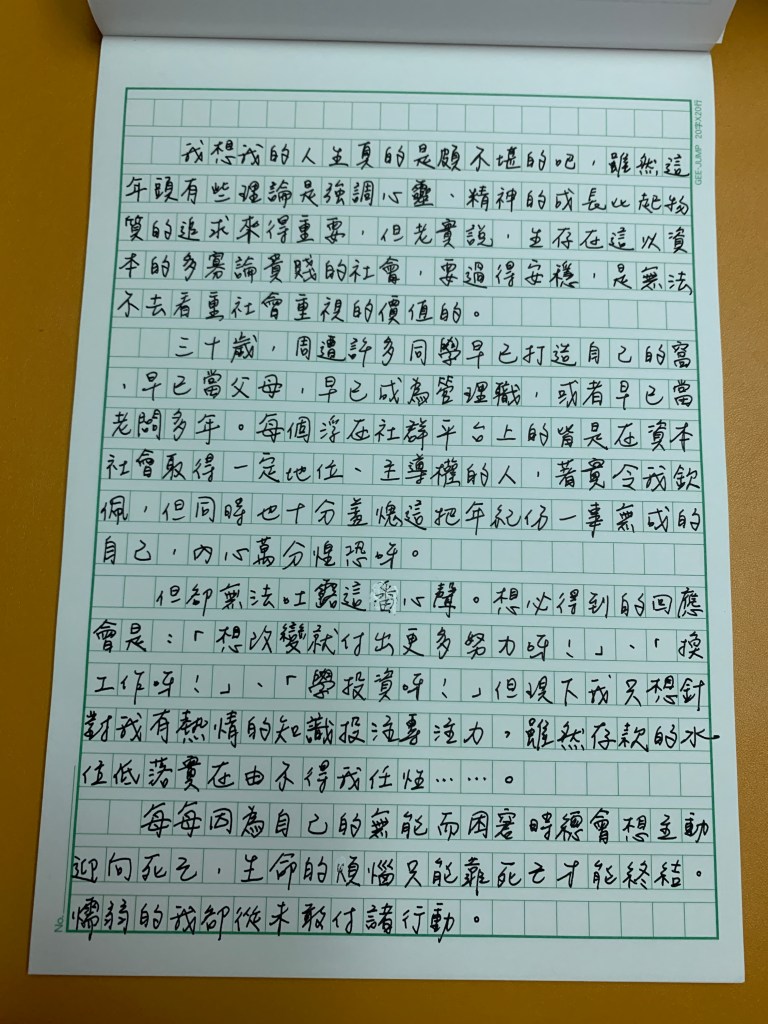 GEE-JUMP 20字X20行
我想我的人生真的是頗不堪的吧，雖然這
年頭有些理論是強調心靈、精神的成長比起物
質的追求來得重要，但老實說，生存在這以資
本的多寡論貴賤的社會，要過得安穩，是無法
不去看重社會重視的價值的。
三十歲，周遭許多同學早已打造自己的窩
，早已當父母，早已成為管理職，或者早已當
老闆多年。每個浮在社群平台上的皆是在資本
社會取得一定地位、主導權的人，著實令我欽
佩，但同時也十分羞愧這把年紀仍一事無成的
自己，內心萬分惶恐呀。
但卻無法吐露這番心聲。想必得到的回應
會是：「想改變就付出更多努力呀！」、「換
工作呀！」、「學投資呀！」但現下我只想針
對我有熱情的知識投注專注力，雖然存款的水
位低落實在由不得我任性……。
每每因為自己的無能而困窘時總會想主動
迎向死亡，生命的煩惱只能靠死亡才能終結。
懦弱的我卻從未敢付諸行動。
No.